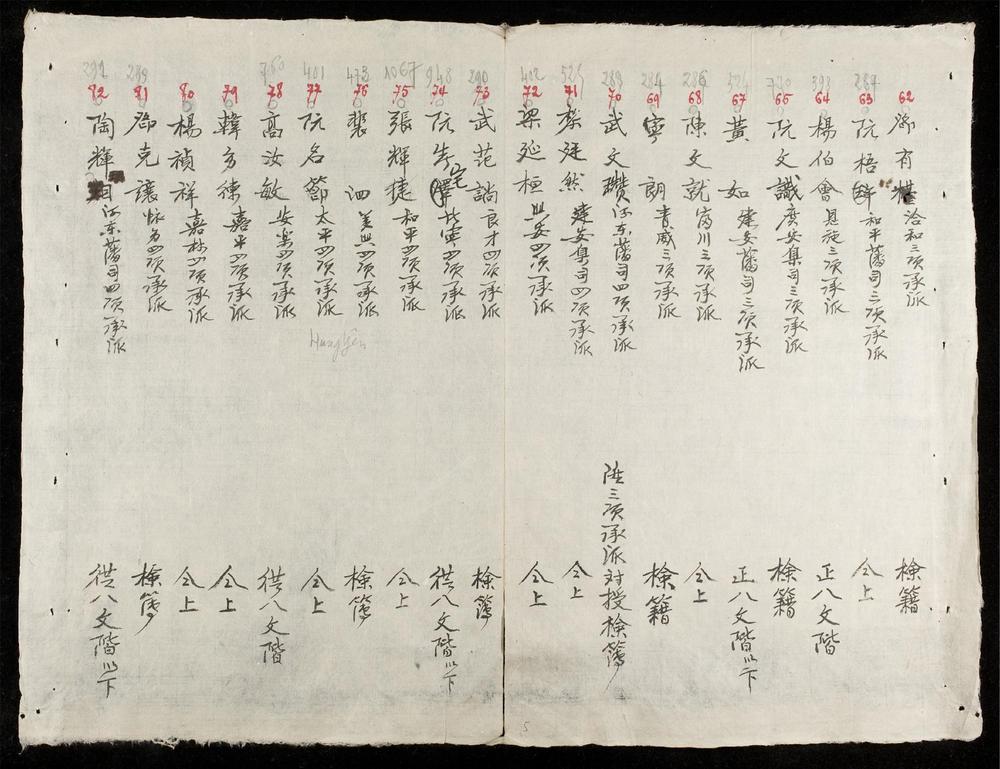 62 鄧有 洽和三項承派 檢籍
284 63 阮梧 和平藩司三項承派 仝上
398 64 楊伯會 恩施三項承派 正八文階
65 阮文識 廣安集司三項承派 檢籍
67 黃如 建安藩司三項承派 正八文階以下
286 68 陳文就 富川三項承派 仝上
284 69 寧朗 青威三項承派 檢籍
288 70 武文瓚 河東藩司四項承派 陞三項承派対授檢簿
525 71 黎廷然 建安集司四項承派 仝上
402 72 梁延桓 四項承派 仝上
290 73 武范 良才四項承派 檢簿
948 74 阮 宅 四項承派 從八文階以下
1067 75 張輝捷 和平四項承派 仝上
473 76 裴泗 美豊四項承派 檢簿
401 77 阮名節 太平四項承派 仝上
Hưng Yên
760 78 高汝敏 安樂四項承派 從八文階
79 韓方 嘉平四項承派 仝上
80 楊禎祥 嘉林四項承派 仝上
289 81 鄧克讓 四項承派 檢簿
291 82 陶輝 河東藩司四項承派 從八文階以下
5